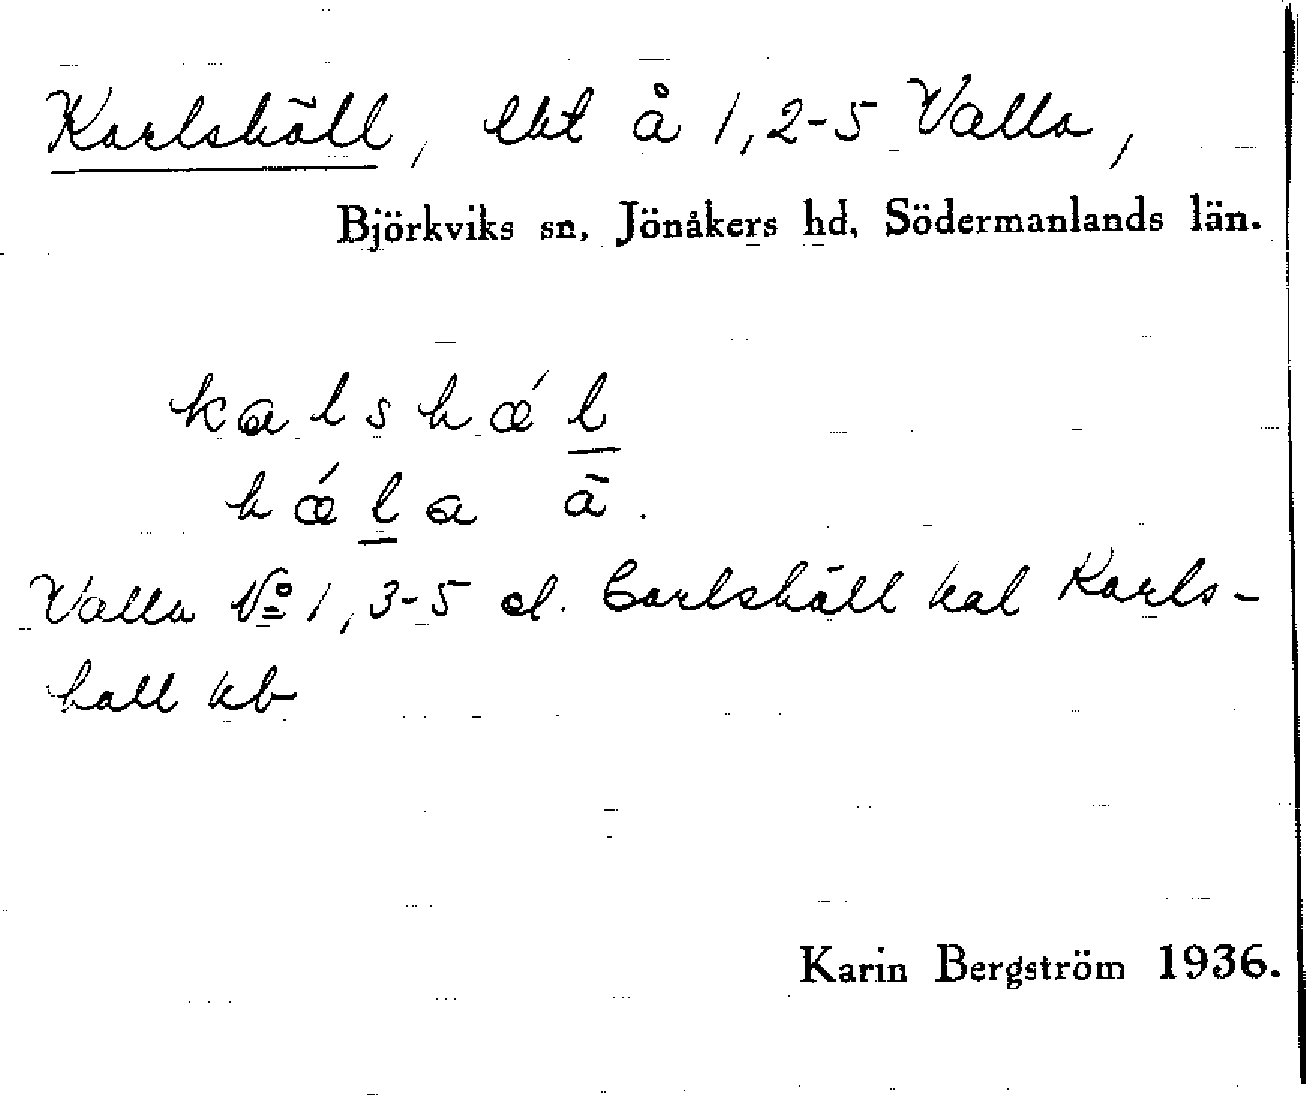 Karlshäll, lht å 1,2-5 Valla,
Björkviks sn, Jönåkers hd, Södermanlands län.
kalshǽl
hǽla ā.
Valla No 1,3-5 el. Carlshäll hal Karls-
hall kb
Karin Bergström 1936.